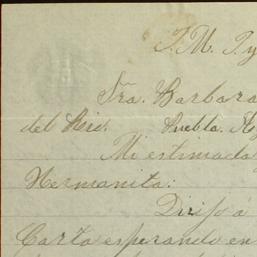 J. M. J. y
Sra. Barbara
del Rio. Puebla. Ag
Mi estimada
Hermanita:
Dirijo á
Carta esperando en